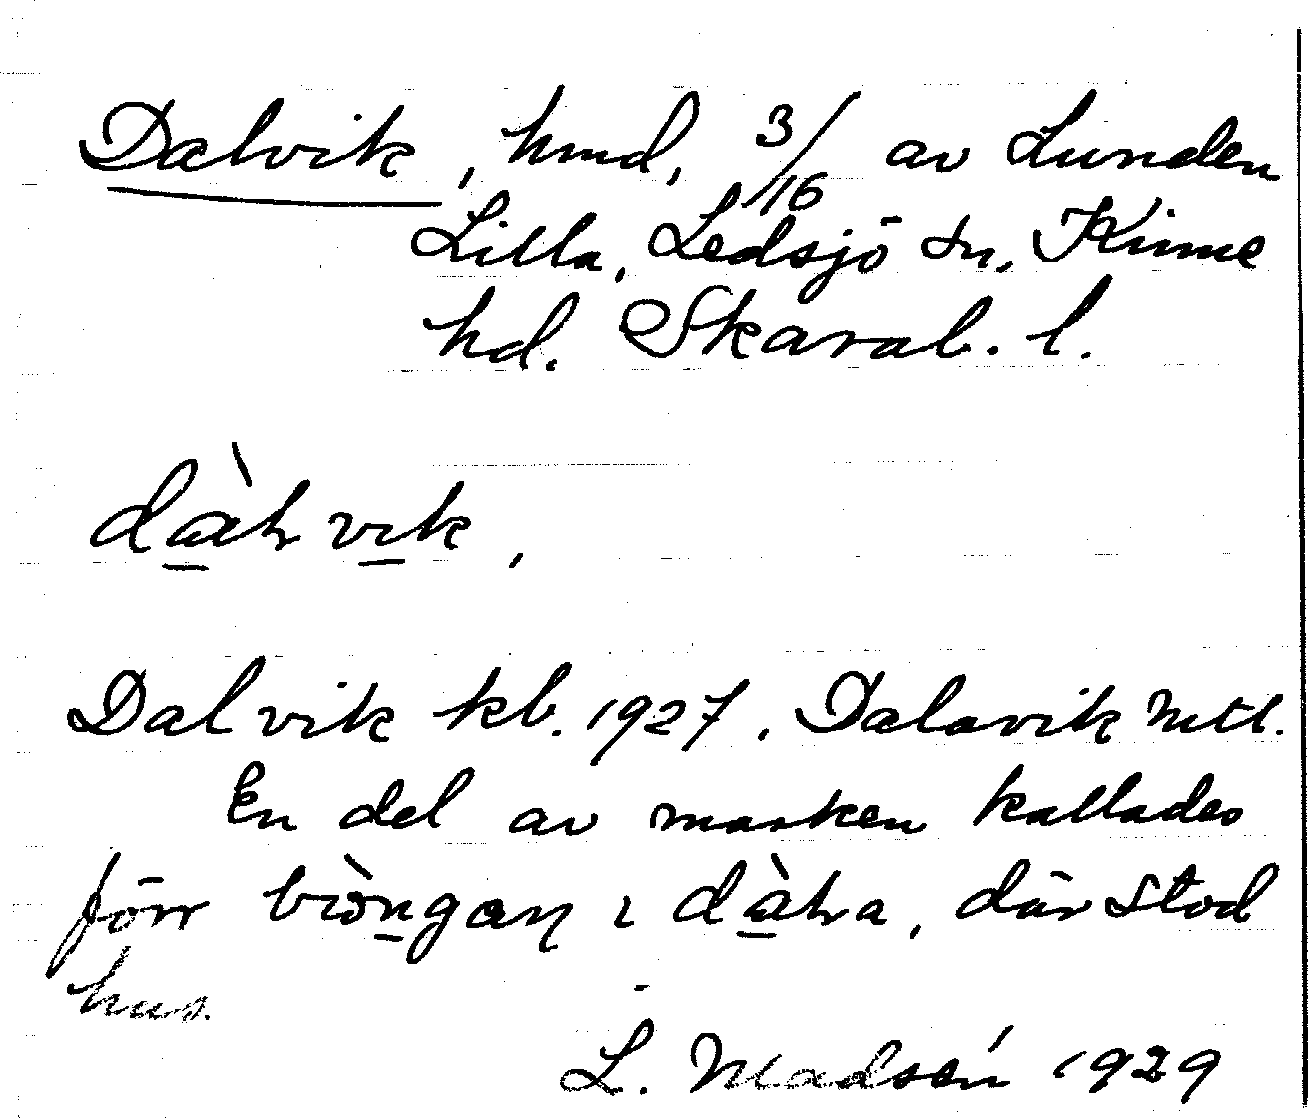 Dalvik, hmd, 3/16 av Lunden
Lilla, Ledsjö sn, Kinne
hd. Skarab. l.
dàlvik,
Dalvik kb. 1927, Dalavik Mtl.
En del av marken kallades
förr i dàla, där stod
hus.
L. Madsén 1929